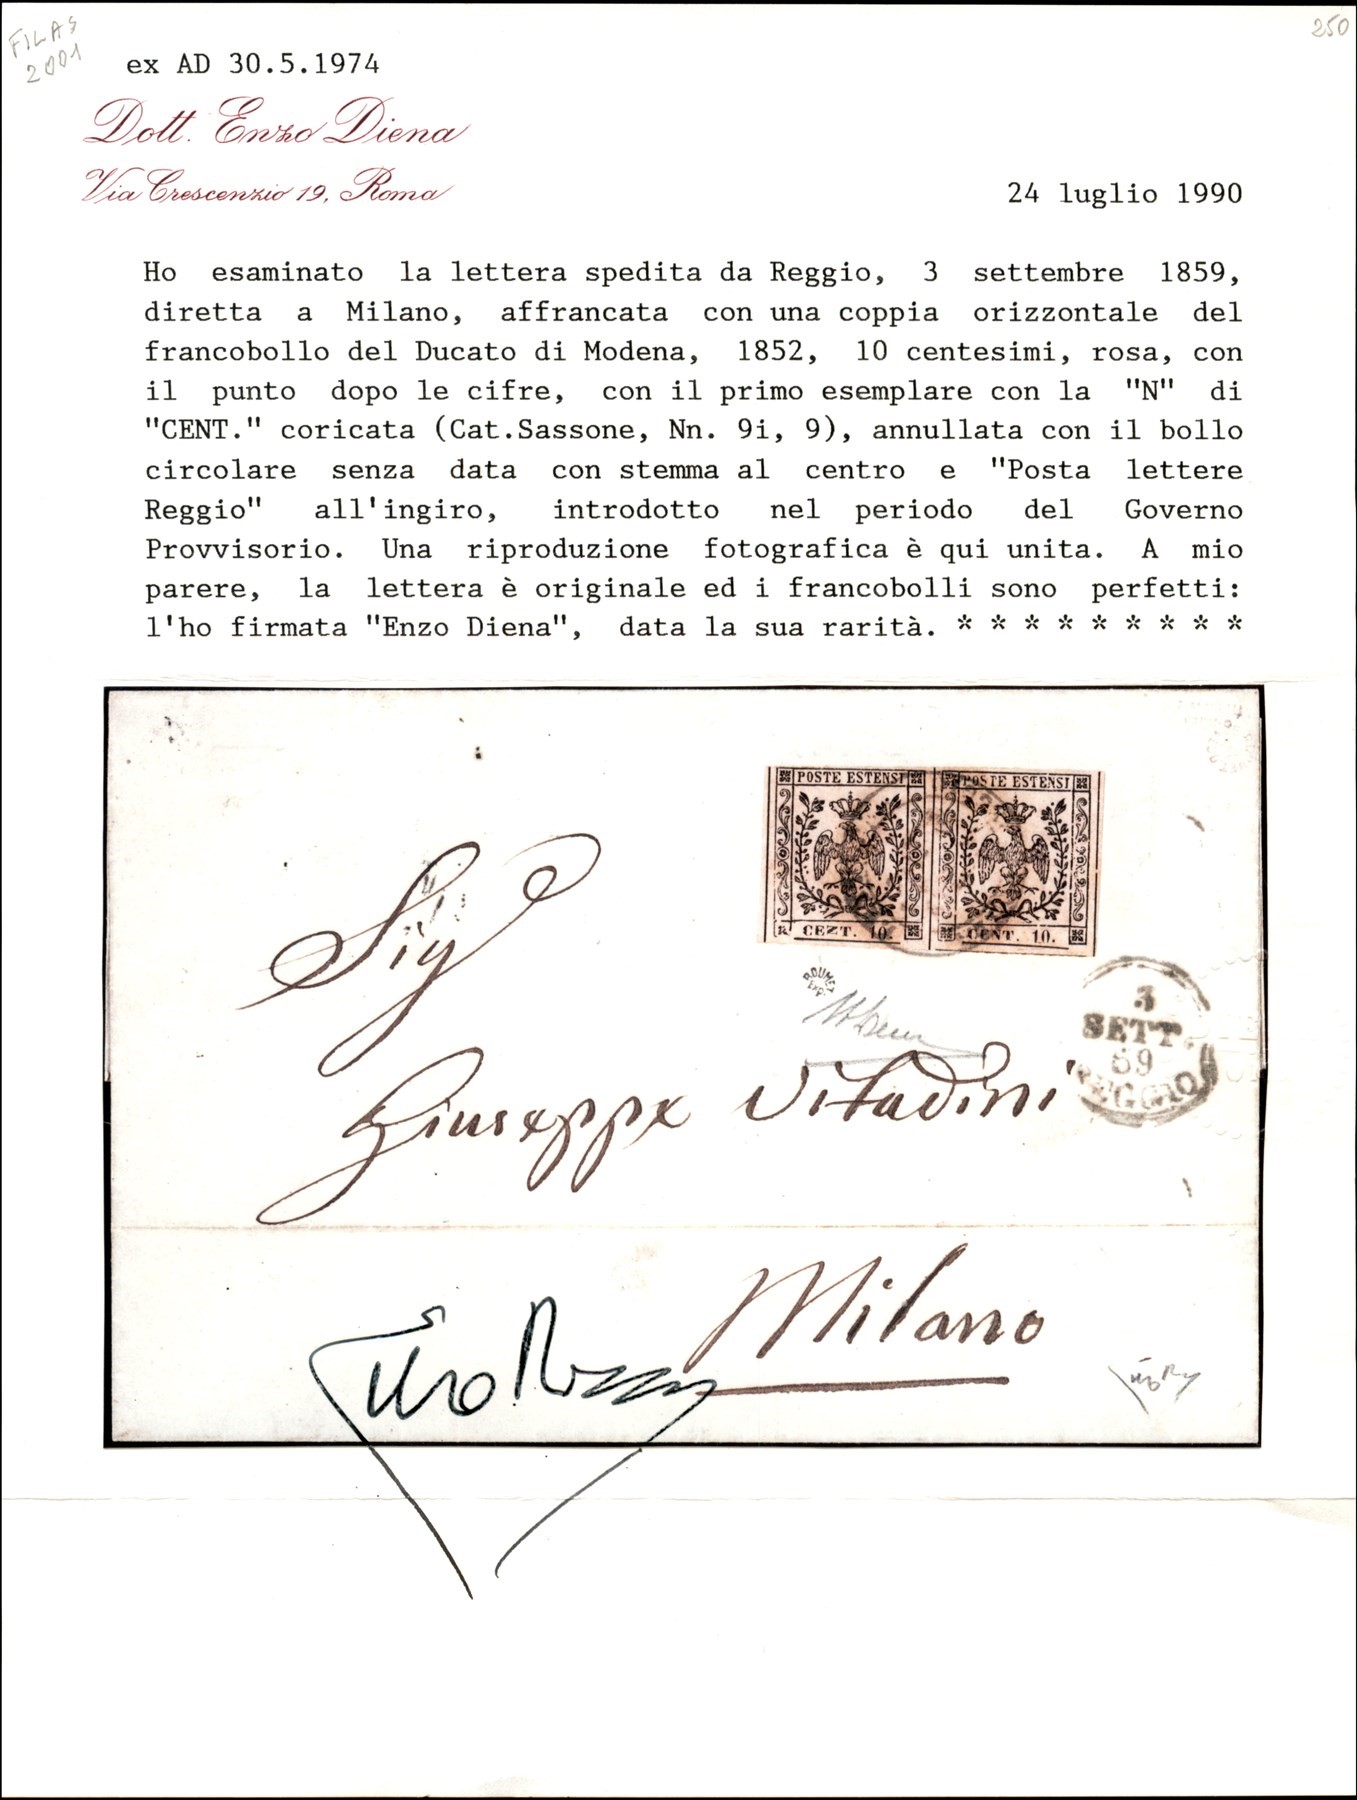 FILAS
2001
250
ex AD 30.5.1974
Dott. Enzo Diena
Via Crescenzio 19, Roma
24 luglio 1990
Ho esaminato la lettera spedita da Reggio, 3 settembre 1859,
diretta a Milano, affrancata con una coppia orizzontale del
francobollo del Ducato di Modena, 1852, 10 centesimi, rosa, con
il punto dopo le cifre, con il primo esemplare con la "N" di
"CENT." coricata (Cat.Sassone, Nn. 9i, 9), annullata con il bollo
circolare senza data con stemma al centro e "Posta lettere
Reggio" all'ingiro, introdotto nel periodo del Governo
Provvisorio. Una riproduzione fotografica è qui unita. A mio
parere, la lettera è originale ed i francobolli sono perfetti:
l'ho firmata "Enzo Diena", data la sua rarità. * * * * * * * * *
POSTE ESTENSI POSTE ESTENSI
CEZT. 10. CENT. 10.
ROUMET
EXP.
3
SETT.
59
REGGIO
Sig
Giuseppe Vitadini
Milano